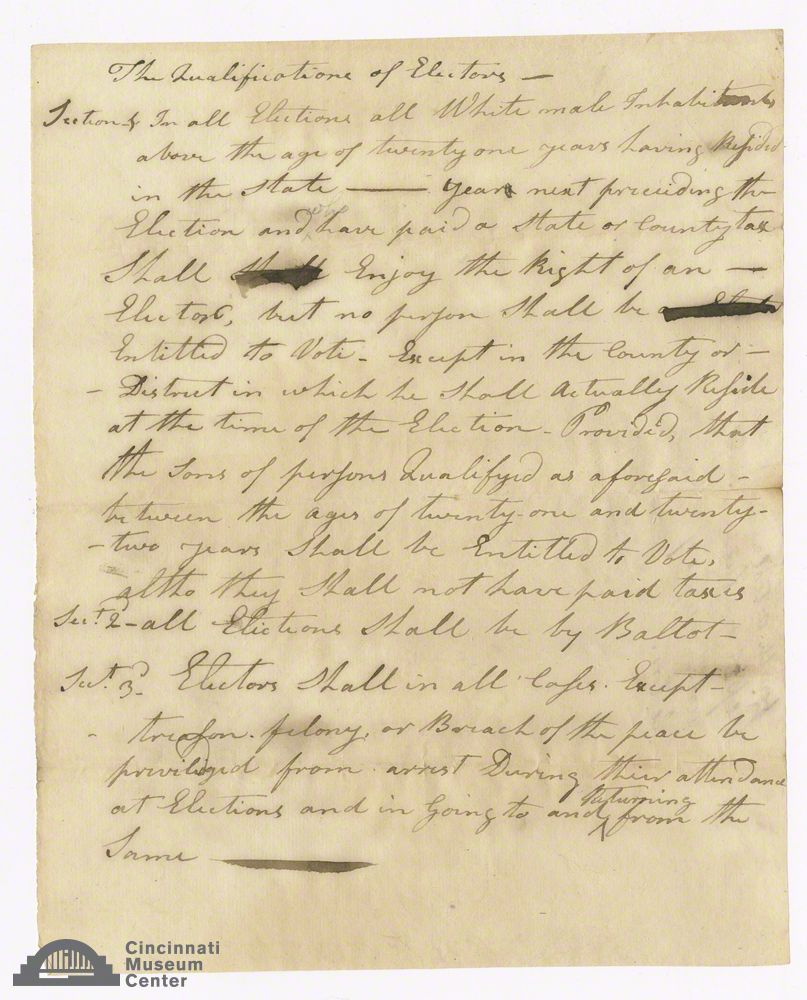 The Qualifications of Electors —
Section 1 In all Elections all White male Inhabitants
above the age of twenty one years having Resided
in the State ——— years next preceeding the
Election and who have paid a State or County tax
Shall Enjoy the Right of an —
Elector, but no person Shall be
Entitled to Vote - Except in the County or —
- District in which he Shall Actually Reside
at the time of the Election - Provided, that
the Sons of persons Qualifyed as aforesaid -
between the ages of twenty-one and twenty-
- two years Shall be Entitled to Vote,
altho they Shall not have paid taxes
Sect. 2 - all Elections Shall be by Ballot -
Sect. 3d. Electors Shall in all Cases. Except -
- treason. felony, or Breach of the peace be
priviledged from arrest During their attendance
at Elections and in Going to and Returning from the
Same ———
Cincinnati
Museum
Center